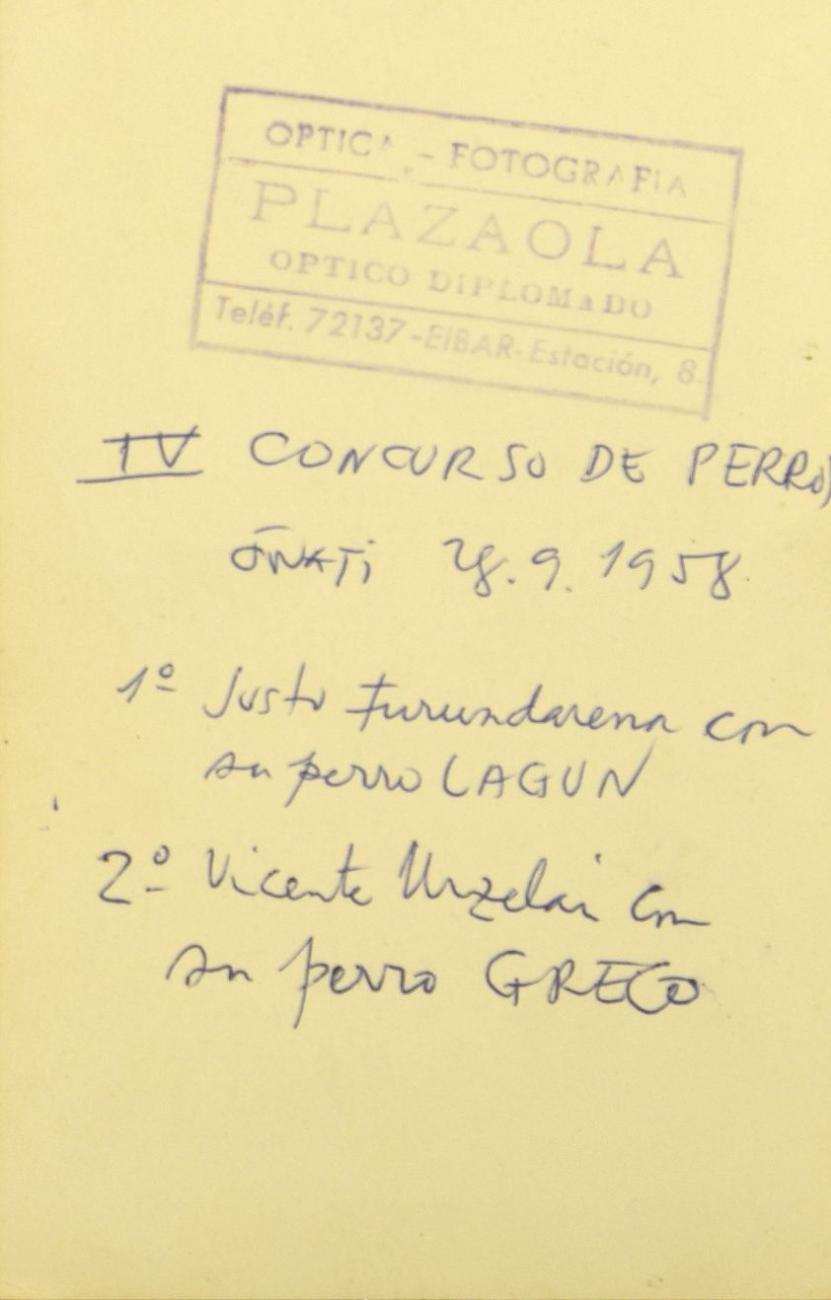 OPTICA - FOTOGRAFIA
PLAZAOLA
OPTICO DIPLOMADO
Teléf. 72137 - EIBAR - Estación, 8
IV CONCURSO DE PERROS
OÑATI 28.9.1958
1º Justo Furundarena con
su perro LAGUN
2º Vicente Urzelai con
su perro GRECO